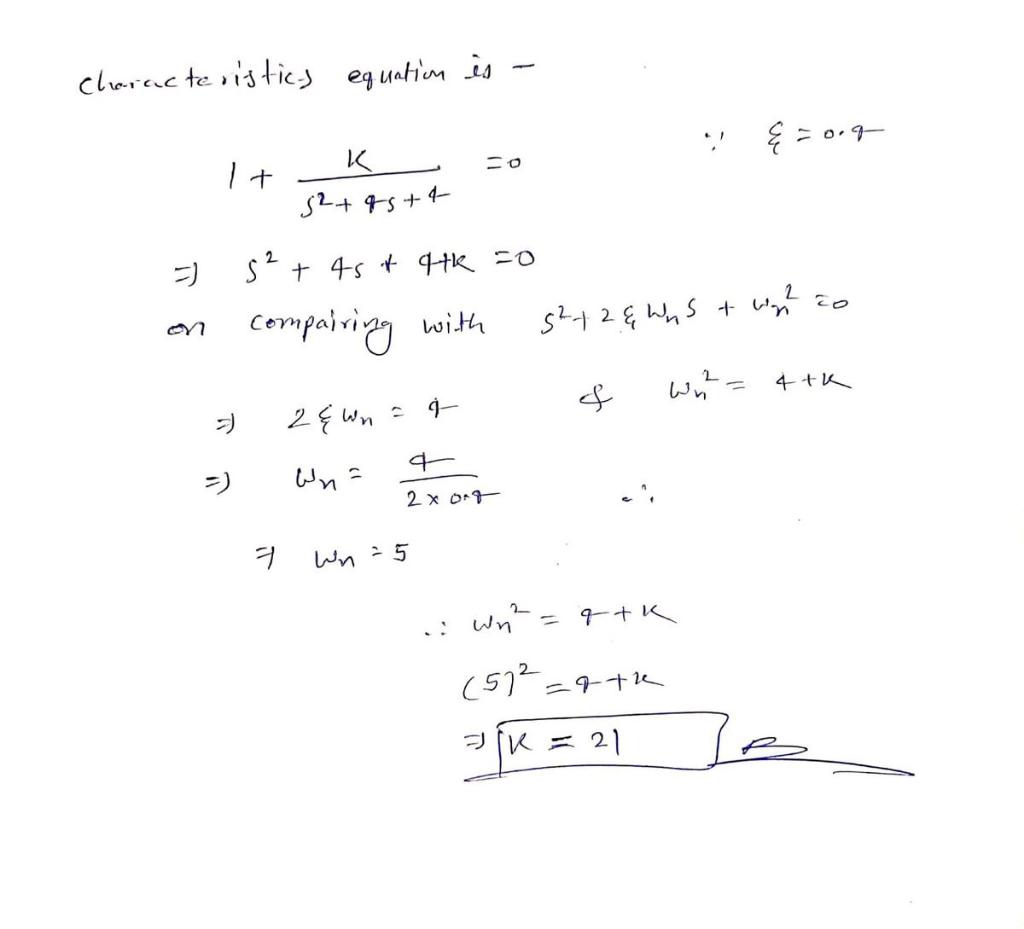 characteristics equation is –
∵ ξ = 0.4
1 + K / (s² + 4s + 4) = 0
⇒ s² + 4s + 4+K = 0
on compairing with s² + 2ξWnS + Wn² = 0
⇒ 2ξWn = 4 & Wn² = 4+K
⇒ Wn = 4 / (2×0.4) ∴
⇒ Wn = 5
∴ Wn² = 4+K
(5)² = 4+K
⇒ K = 21